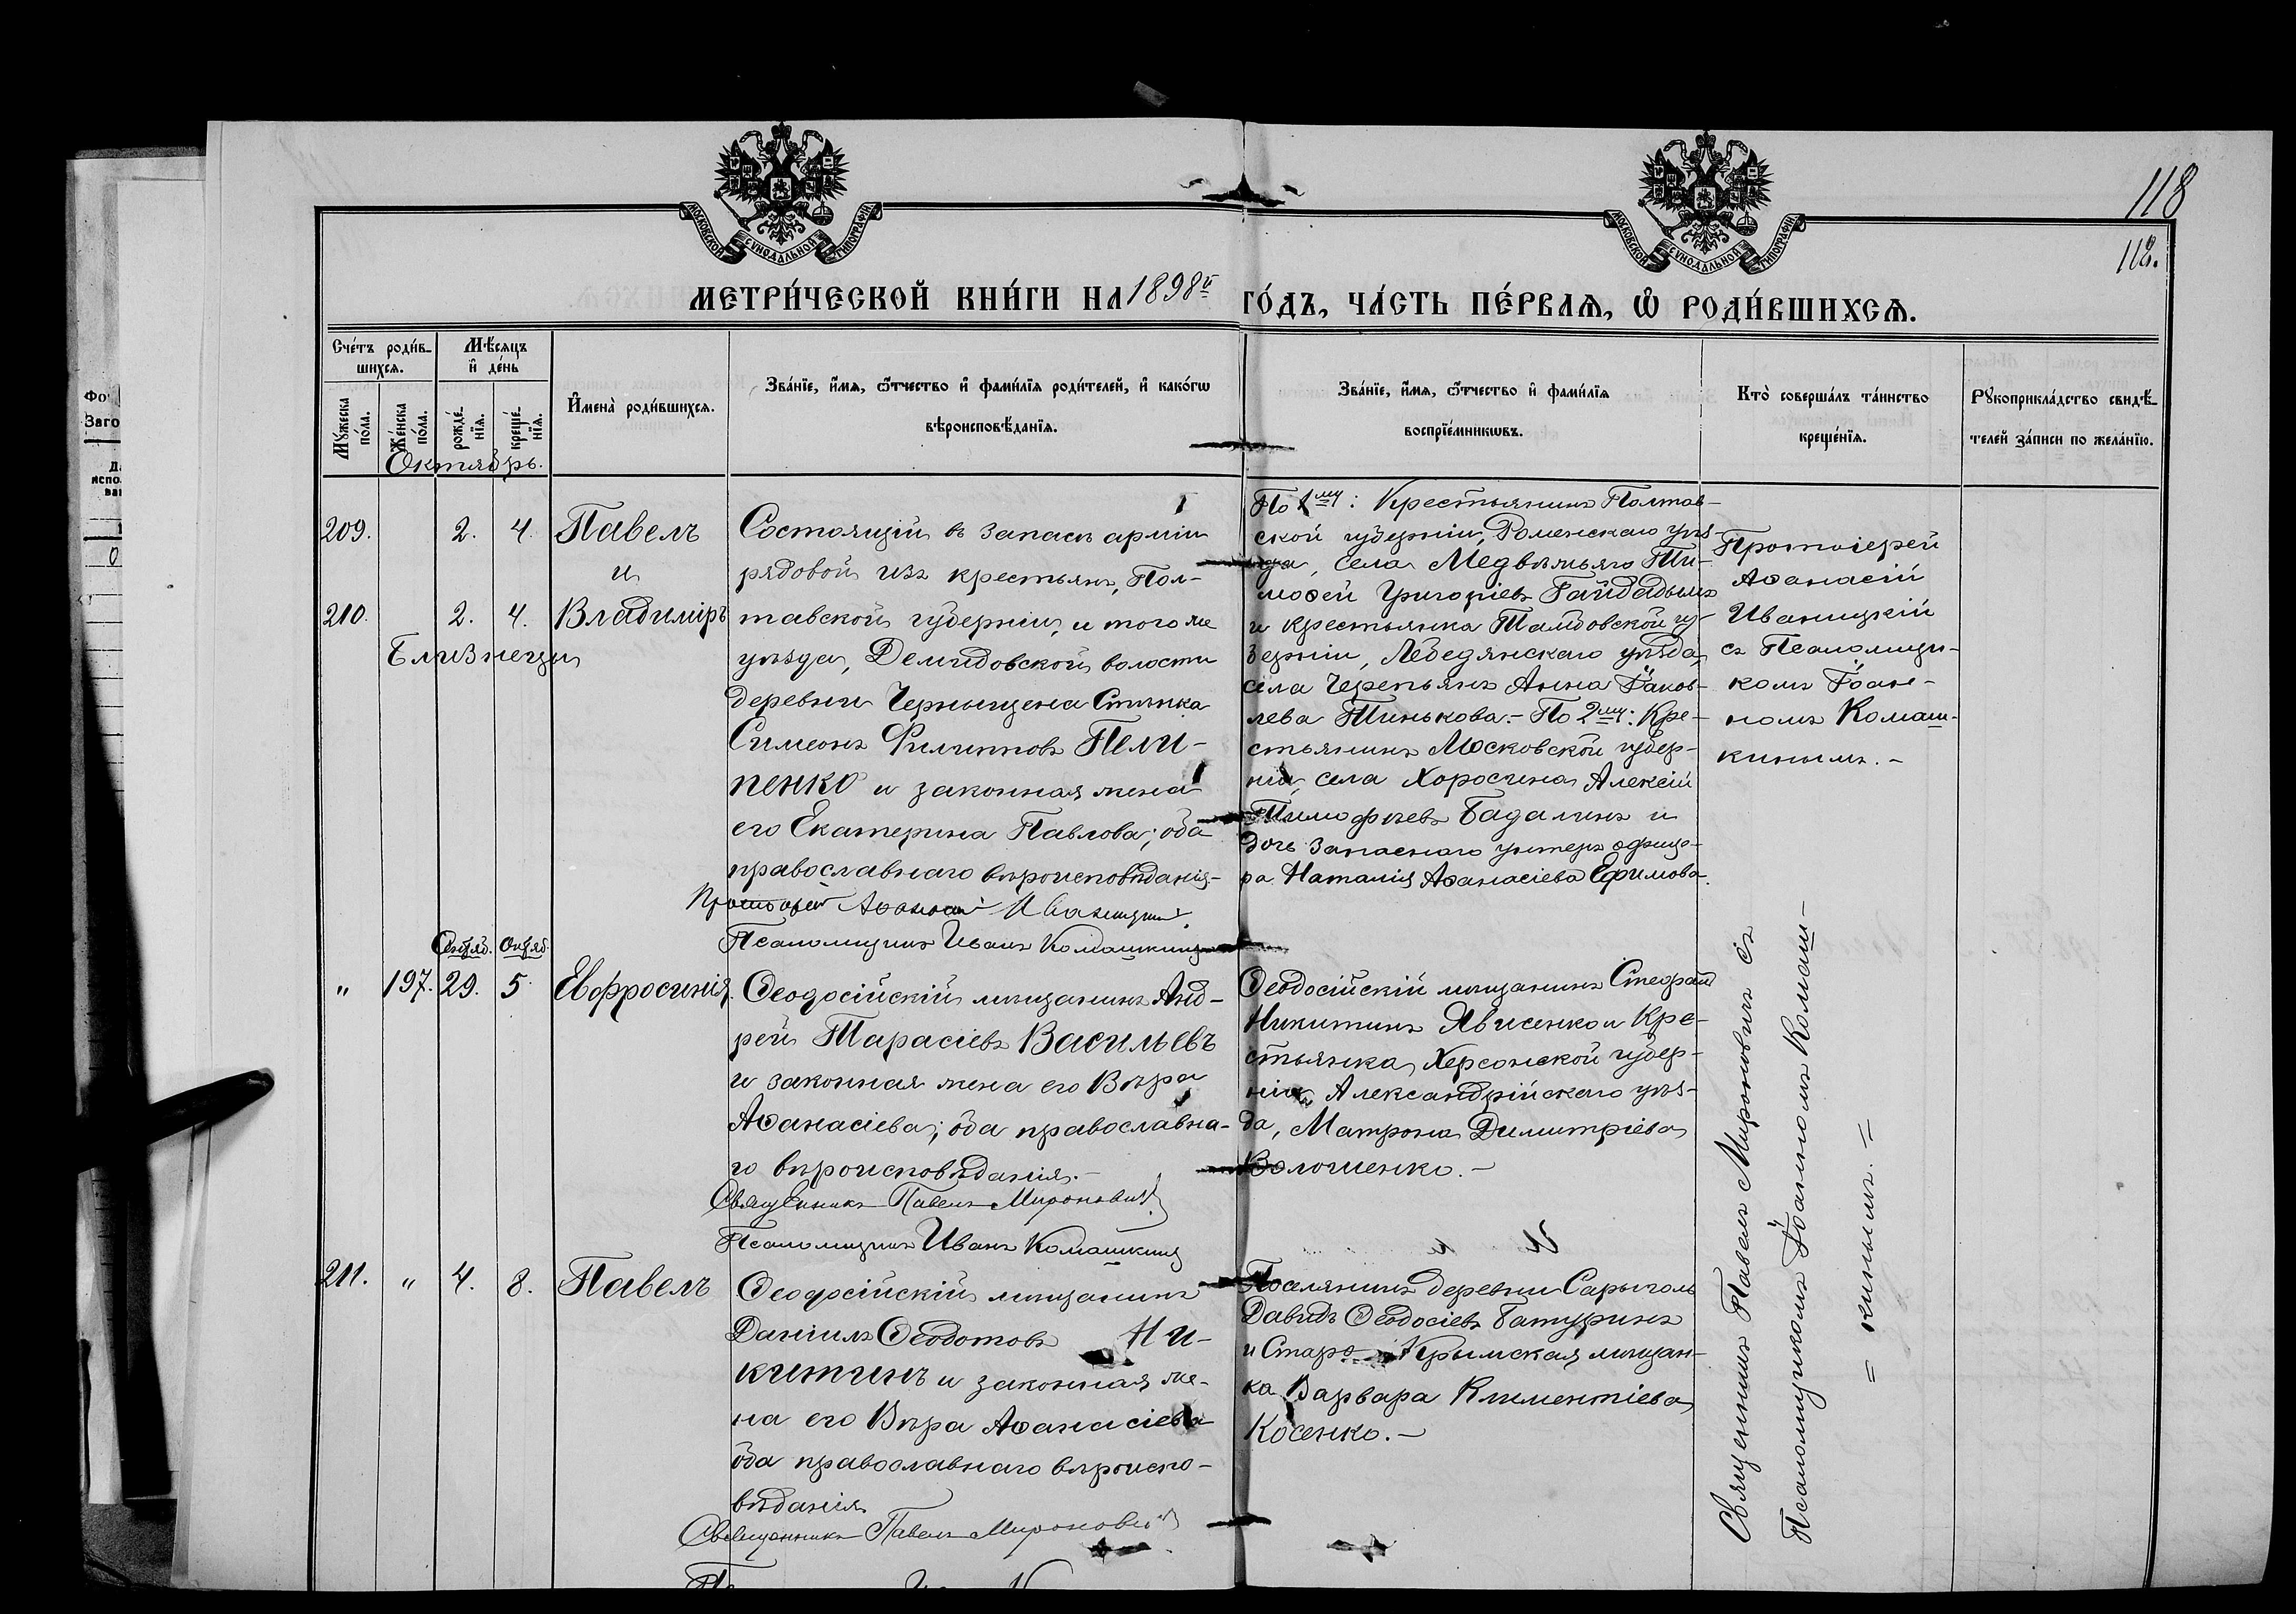 118
118.
МОСКОВСКОЙ СѴНОДАЛЬНОЙ ТИПОГРАФІИ
МОСКОВСКОЙ СѴНОДАЛЬНОЙ ТИПОГРАФІИ
МЕТРИ́ЧЕСКОЙ КНИ́ГИ НА 1898й ГО́ДЪ, ЧА́СТЬ ПЕ́РВАѦ, Ѡ҆ РОДИ́ВШИХСѦ.
Сче́тъ роди́в-
шихсѧ.
Мѣ́сѧцъ
и҆ де́нь
Мꙋ́жеска
по́ла.
Же́нска
по́ла.
рожде́-
нїѧ.
креще́-
нїѧ.
И҆мена̀ роди́вшихсѧ.
Зва́нїе, и҆́мѧ, ѻ҆́тчество и҆ фами́лїѧ роди́телей, и҆ како́гѡ
вѣроисповѣ́данїѧ.
Зва́нїе, и҆́мѧ, ѻ҆́тчество и҆ фами́лїѧ
воспрїе́мникѡвъ.
Кто̀ соверша́лъ та́инство
креще́нїѧ.
Рꙋкоприкла́дство свидѣ́-
телей за́писи по жела́нїю.
Октябрь.
209. 2. 4. Павелъ
и
210. 2. 4. Владиміръ
Близнецы
Состоящій въ запасѣ арміи
рядовой изъ крестьянъ, Пол-
тавской губерніи, и того же
уѣзда, Демидовской волости
деревни
Симеонъ Филипповъ Пели-
пенко и законная жена
его Екатерина Павлова; оба
православнаго вѣроисповѣданія.
Протоіерей Аѳанасій Иваницкій
Псаломщикъ Иванъ Комашкинъ
По 1му: Крестьянинъ Полтав-
ской губерніи, Роменскаго уѣз-
да, села Медвѣжьяго Ти-
моѳей Григоріевъ
и крестьянка Тамбовской гу-
берніи, Лебедянскаго уѣзда,
села Черепьянъ Анна Іаков-
лева Тинькова.- По 2му: Кре-
стьянинъ Московской губер-
ніи, села Хорошина Алексій
Тимофѣевъ Бадалинъ и
дочь запаснаго унтеръ офице-
ра Наталія Аѳанасіева Ефимова.
Протоіерей
Аѳанасій
Иваницкій
съ Псаломщи-
комъ Іоан-
номъ Комаш-
кинымъ.-
Сентяб. Октяб.
" 197. 29. 5. Евфросинія.
Ѳеодосійскій мѣщанинъ Анд-
рей Тарасіевъ Васильевъ
и законная жена его Вѣра
Аѳанасіева; оба православна-
го вѣроисповѣданія.-
Священникъ Павелъ Мироновичъ
Псаломщикъ Иванъ Комашкинъ
Ѳеодосійскій мѣщанинъ Стефанъ
Никитинъ Явисенко и Кре-
стьянка Херсонской губер-
ніи, Александрійскаго уѣз-
да, Матрона Димитріева
Волошенко.-
211. " 4. 8. Павелъ
Ѳеодосійскій мѣщанинъ
Даніилъ Ѳеодотовъ Ни-
китинъ и законная же-
на его Вѣра Аѳанасіева
оба православнаго вѣроиспо-
вѣданія
Священникъ Павелъ Мироновичъ
Поселянинъ деревни Сарыголь
Давидъ Ѳеодосіевъ Батуринъ
и Старо-Крымская мѣщан-
ка Варвара Климентіева
Косенко.-
Священникъ Павелъ Мироновичъ съ
Псаломщикомъ Іоанномъ Комаш-
= кинымъ. =